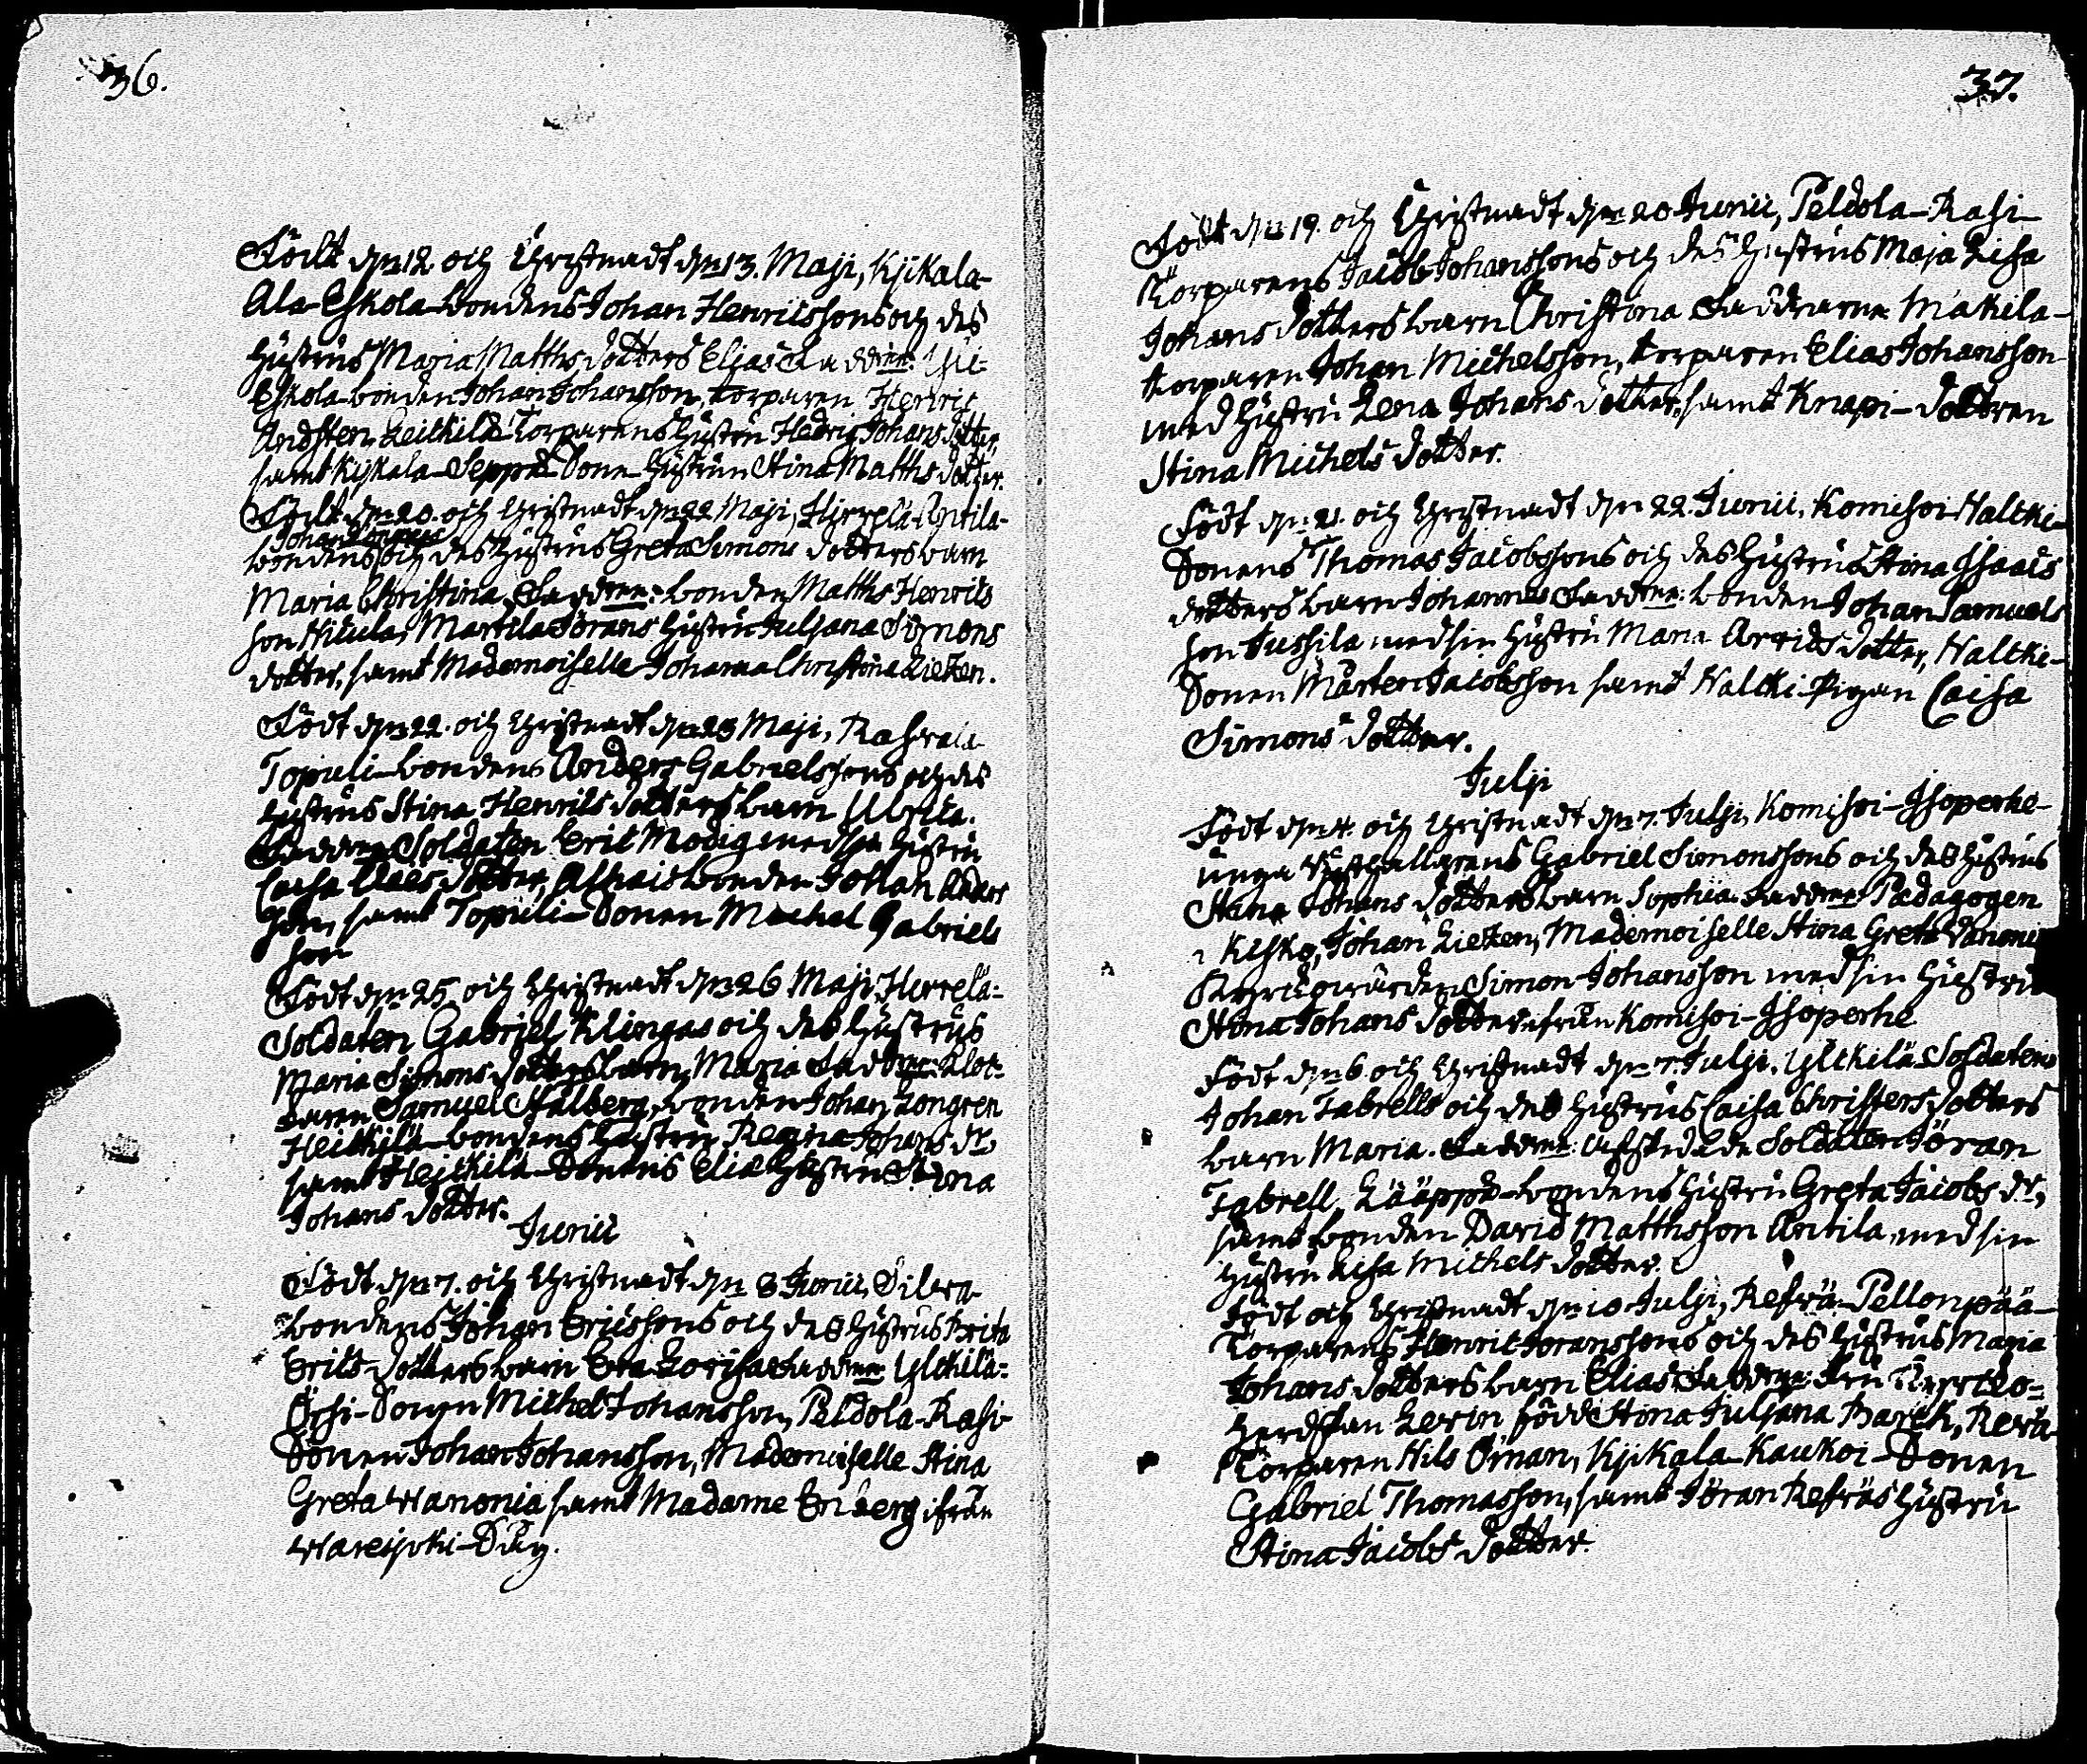 36.
Född den 12 och Christnadt den 13. Maji, Kjikala-
Ala-Eskola-bondens Johan Henricssons och des
Hustrus Maria Matths dotters Elias Faddrar:
Eskola-bonden Johan Johansson, torparen Henric
Andsten, Heickilä Torparens Hustru Hedvig Johans dotter,
samt Kijkala-Seppä-Sone-Hustrun Stina Matths dotter.
Född den 20. och Christnadt den 22 Maji, Antila-
Johan
bondens och des Hustrus Greta Simons dotters barn
Maria Christina, Faddrar: bonden Matths Henrics
son Nicula, Martila Jörans Hustru Juljana Simons
dotter, samt Mademoiselle Johanna Christina Lietzen.
Född den 22. och Christnadt den 23 Maji,
Topuli-bondens Anders Gabrielssons och des
Hustrus Stina Henrics dotters barn Ulrica.
Faddrar Soldaten Eric Modig med sin Hustru
Caisa Claes dotter, bonden Johan Anders
son, samt Topuli-Sonen Machel Gabriels
son
Född den 25. och Christnadt den 26 Maji, Herrelä-
Soldaten Gabriel Klingas och des Hustrus
Maria Simons dotters barn, Maria Faddrar: Kloc-
karen Samuel Stålberg, bonden Johan Longren
Heickilä-bondens Hustru Regina Johans dr,
samt Hejckilä-Sonens Eliæ Hustru Stina
Johans dotter.
Junii
Född den 7. och Christnadt den 8 Junii,
bondens Johan Ericssons och des Hustrus Brita
Erics dotters barn Eva Lovisa Faddrar Ylckilä-
Örsi-Sonen Michel Johansson, Peldola-Rasi-
Sonen Johan Johansson, Mademoiselle Stina
Greta Wanonia samt Madame Enberg ifrån
Warejoki-By.
37.
Född den 19. och Christnadt den 20 Junii, Peldola-Rasi-
Torparens Jacob Johanssons och des Hustrus Maja Lisa
Johans dotters barn Christina Faddrarne Makila-
torparen Johan Michelsson, torparen Elias Johansson
med Hustru Lena Johans dotter, samt Knapi-dottren
Stina Michels dotter.
Född den 21. och Christnadt den 22. Junii, Komisoi-Haltki-
Sonens Thomas Jacobssons och des Hustrus Stina Isaacs
dotters barn Johannes Faddrar: bonden Johan Samuels
son Jussila med sin Hustru Maria Arvids dotter, Haltki-
Sonen Mårten Jacobsson samt Haltki-Pigan Caisa
Simons dotter.
Julji
Född den 4. och Christnadt den 7. Julji, Komisoi-Isoperhe-
unga Rusthallarens Gabriel Simonssons och des Hustrus
Stina Johans dotters barn Sophia. Faddrar Pædagogen
i Kisko, Johan Lietzen, Mademoiselle Stina Greta Vanoni
Kyrckovärden Simon Johansson med sin Hustru
Stina Johans dotter ifrån Komisoi-Isoperhe
Född den 6 och Christnadt den 7. Julji, Ylckilä-Soldatens
Johan Fabrells och des Hustrus Caisa Christers dotters
barn Maria. Faddrar: Afskedade Soldaten Jöran
Fabrell, Lääppä-bondens Hustru Greta Jacobs dr,
samt bonden David Matthsson Antila, med sin
Hustru Lisa Michels dotter.
Född och Christnadt den 10 Julji, Refvä-Pellonpää-
Torparens Henric Joranssons och des Hustrus Maria
Johans dotters barn Elias Faddrar: Fru Kyrcko-
Herdskan Levin född Stina Juljana Barck, Revä-
Torparen Nils Öman, Kjikala-Kaukoi-Sonen
Gabriel Thomasson, samt Jöran Refväs Hustru
Stina Jacobs dotter.